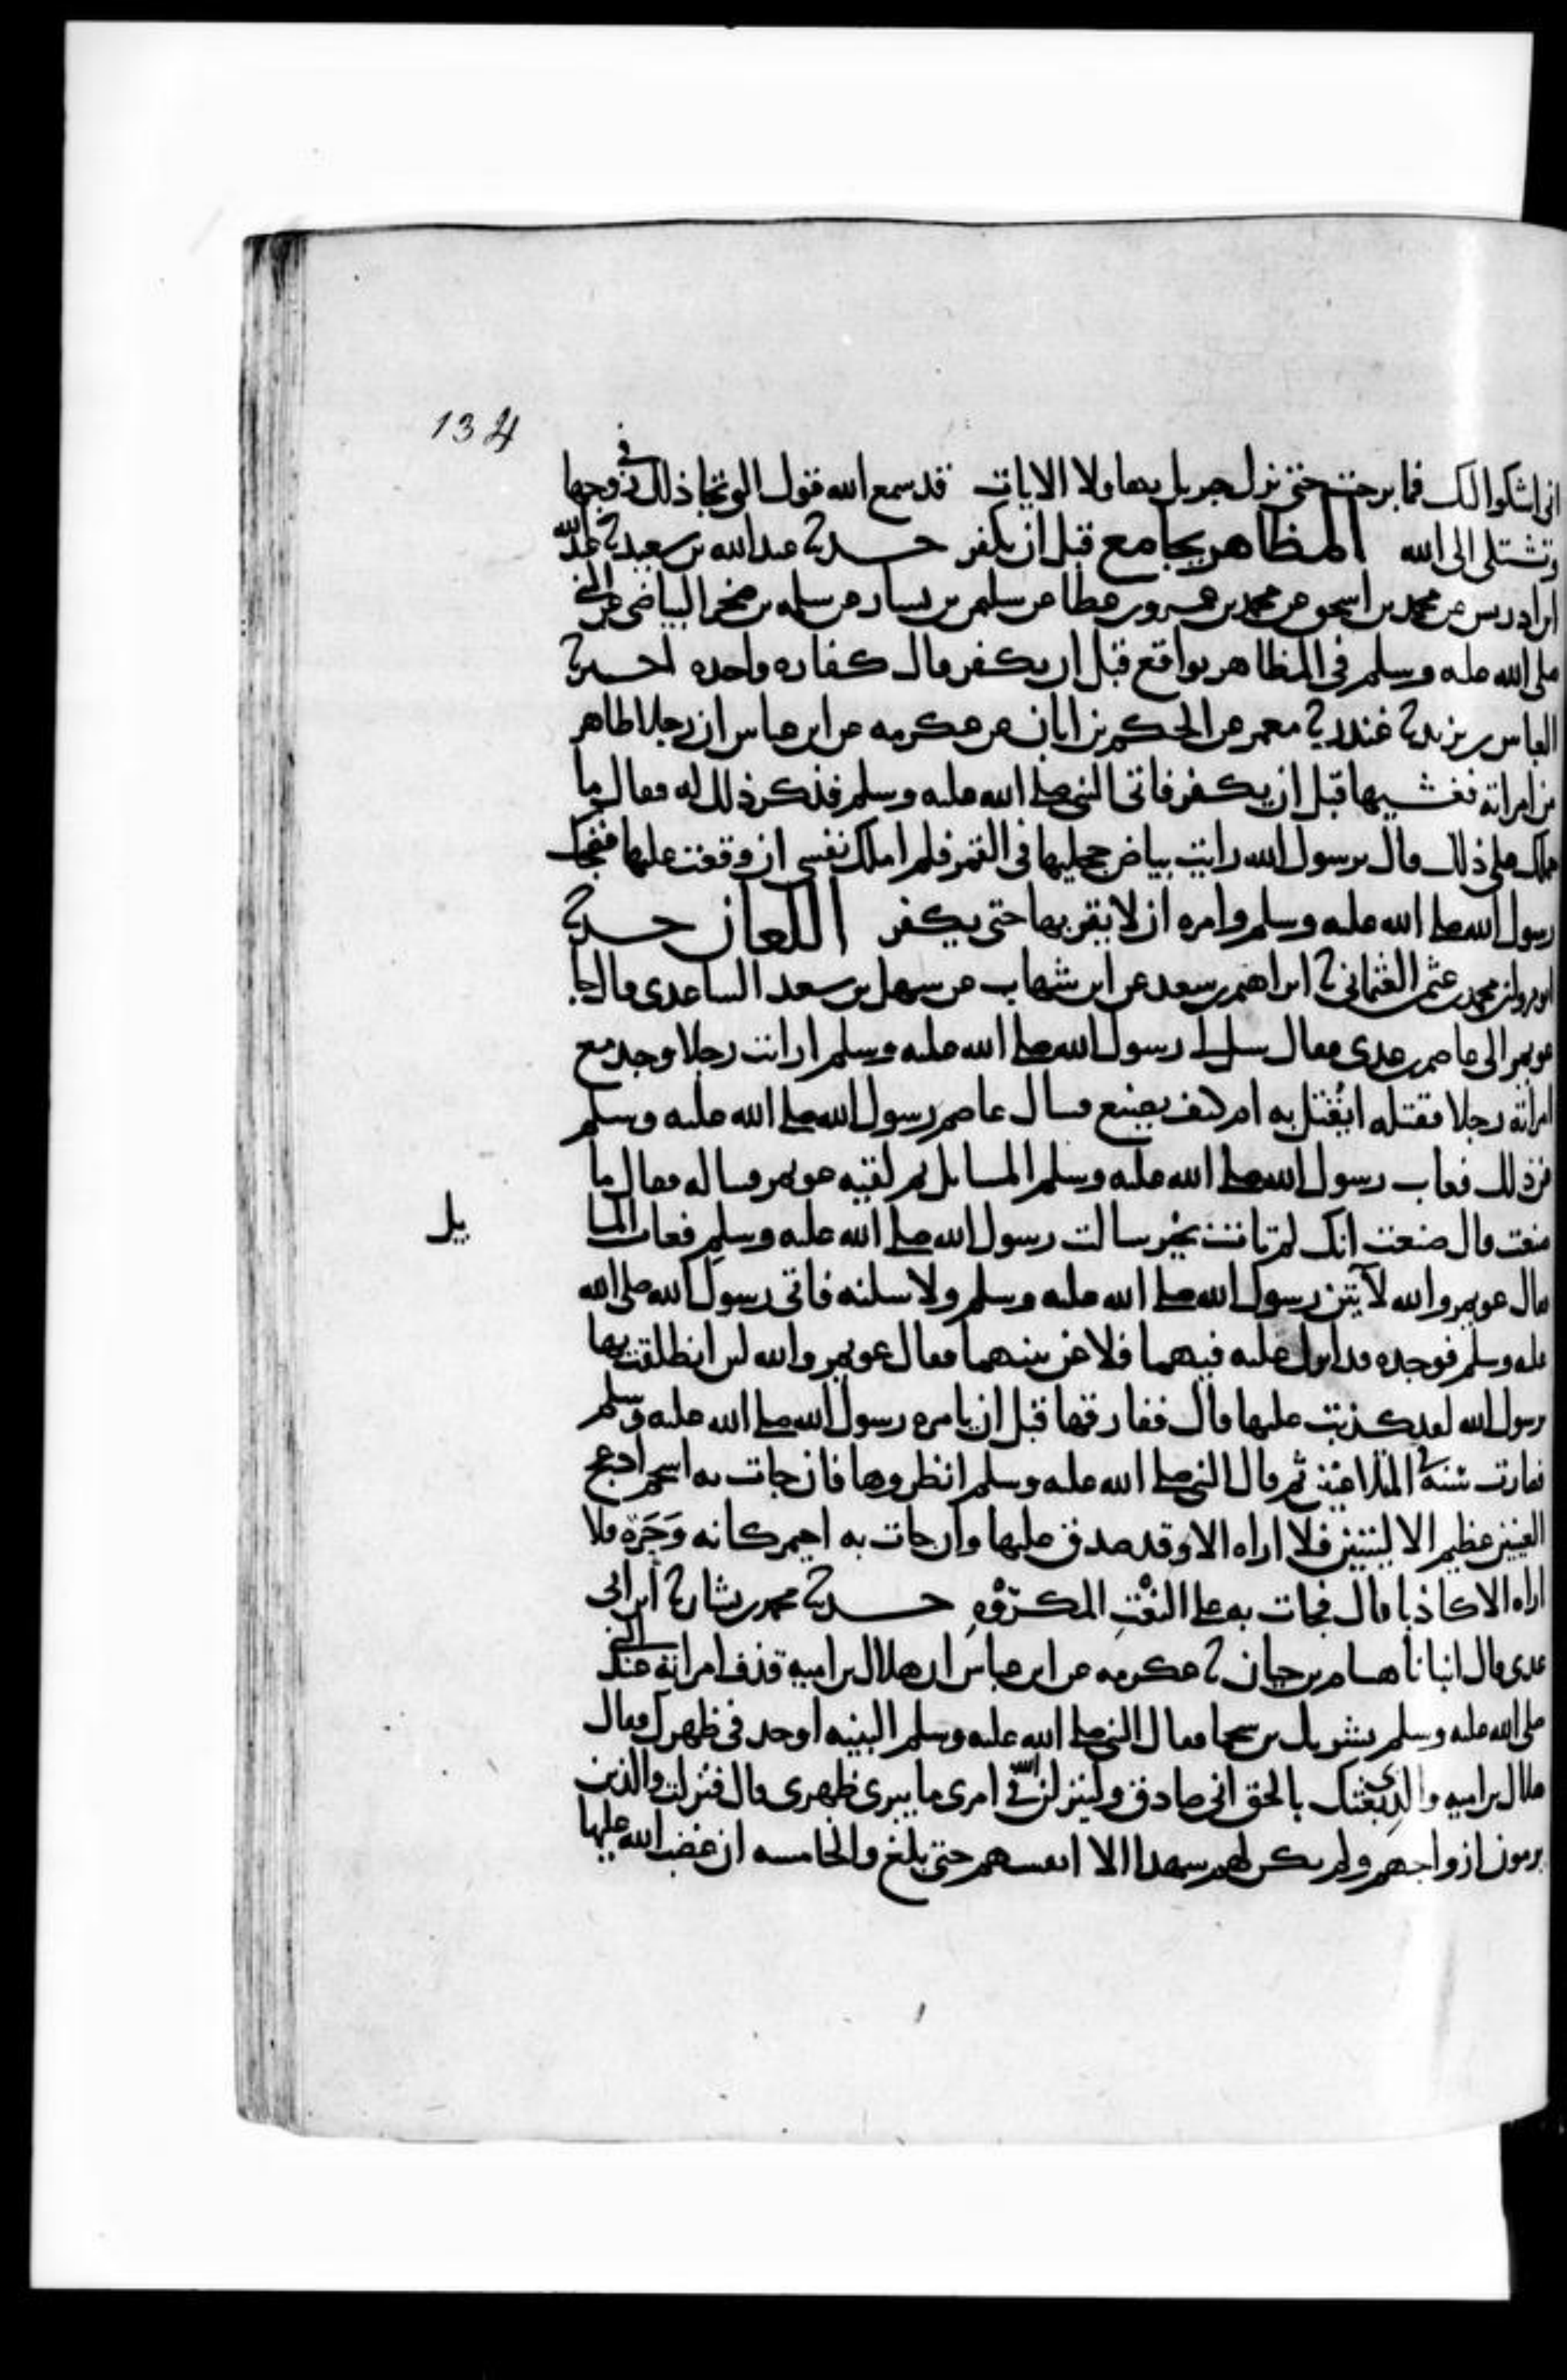 134
اني اشكوا اليك فما برحت حتى نزل جبريل بهاولا الايات قد سمع الله قول التي تجادلك في زوجها
وتشتكي الى الله المظاهر يجامع قبل ان يكفر حدثنا عبد الله بن سعيد ثنا عبد الله
ابن ادريس عن محمد بن اسحق عن محمد بن عمرو بن عطا عن سليمن بن يسار عن سلمه بن صخر البياضي عن النبي
صلى الله عليه وسلم في المظاهر يواقع قبل ان يكفر قال كفاره واحده حدثنا
العباس بن يزيد ثنا غندر ثنا معمر عن الحكم بن ابان عن عكرمه عن ابن عباس ان رجلا ظاهر
من امراته فغشيها قبل ان يكفر فاتى النبي صلى الله عليه وسلم فذكر ذلك له فقال ما
حملك على ذلك قال يرسول الله رايت بياض حجليها في القمر فلم املك نفسي ان وقعت عليها فضحك
رسول الله صلى الله عليه وسلم وامره ان لا يقربها حتى يكفر اللعان حدثنا
ابو مروان محمد بن عثمن العثماني ثنا ابراهيم بن سعد عن ابن شهاب عن سهل بن سعد الساعدي قال جا
عويمر الى عاصم بن عدي فقال سل لي رسول الله صلى الله عليه وسلم ارايت رجلا وجد مع
امراته رجلا فقتله ايقتل به ام كيف يصنع فسال عاصم رسول الله صلى الله عليه وسلم
عن ذلك فعاب رسول الله صلى الله عليه وسلم المسايل ثم لقيه عويمر فساله فقال ما
صنعت قال صنعت انك لم تاتني بخير سالت رسول الله صلى الله عليه وسلم فعاب المسا
يل
فقال عويمر والله لآتين رسول الله صلى الله عليه وسلم ولاسلنه فاتى رسول الله صلى الله
عليه وسلم فوجده قد انزل عليه فيهما فلاعن بينهما فقال عويمر والله لين انطلقت بها
يرسول الله لقد كذبت عليها قال ففارقها قبل ان يامره رسول الله صلى الله عليه وسلم
فصارت سنة المتلاعنين ثم قال النبي صلى الله عليه وسلم انظروها فان جات به اسحم ادعج
العينين عظيم الاليتين فلا اراه الا وقد صدق عليها وان جات به احيمر كانه وحرة فلا
اراه الا كاذبا قال فجات به على النعت المكروه حدثنا محمد بن بشار ثنا ابن ابي
عدي قال انبانا هشام بن حسان ثنا عكرمه عن ابن عباس ان هلال بن اميه قذف امراته عند النبي
صلى الله عليه وسلم بشريك بن سحما فقال النبي صلى الله عليه وسلم البينه او حد في ظهرك فقال
هلال بن اميه والذي بعثك بالحق اني صادق ولينزلن الله في امري ما يبري ظهري قال فنزلت والذين
يرمون ازواجهم ولم يكن لهم شهدا الا انفسهم حتى بلغ والخامسه ان غضب الله عليها